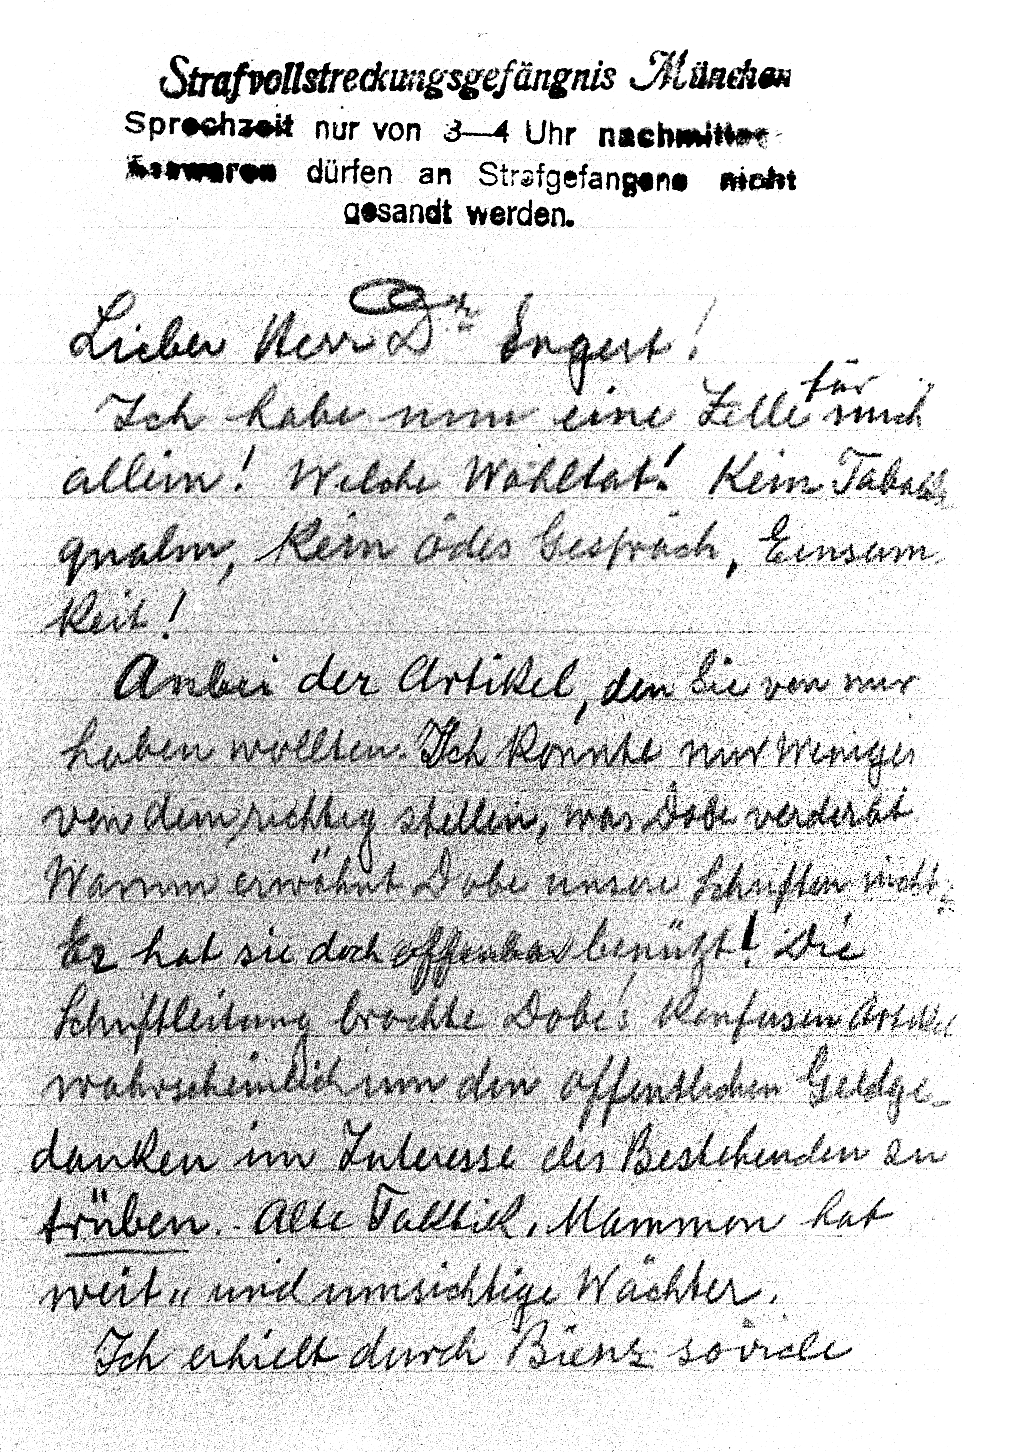 Strafvollstreckungsgefängnis München
Sprechzeit nur von 3—4 Uhr nachmittags
Esswaren dürfen an Strafgefangene nicht
gesandt werden.
Lieber Herr Dr Engert!
Ich habe nun eine Zelle für mich
allein! Welche Wohltat! Kein Taback
qualm, kein ödes Gespräch, Einsam
keit!
Anbei der Artikel, den Sie von mir
haben wollten. Ich konnte nur Weniges
von dem richtig stellen, was Dobe verderbt
Warum erwähnt Dobe unsere Schriften nicht
Er hat sie doch offenbar benützt! Die
Schriftleitung brachte Dobe's konfusen Artikel
wahrscheinlich um den öffentlichen Geldge-
danken im Interesse des Bestehenden zu
trüben. Alte Taktik. Mammon hat
weit- und umsichtige Wächter.
Ich erhielt durch Bienz soviele